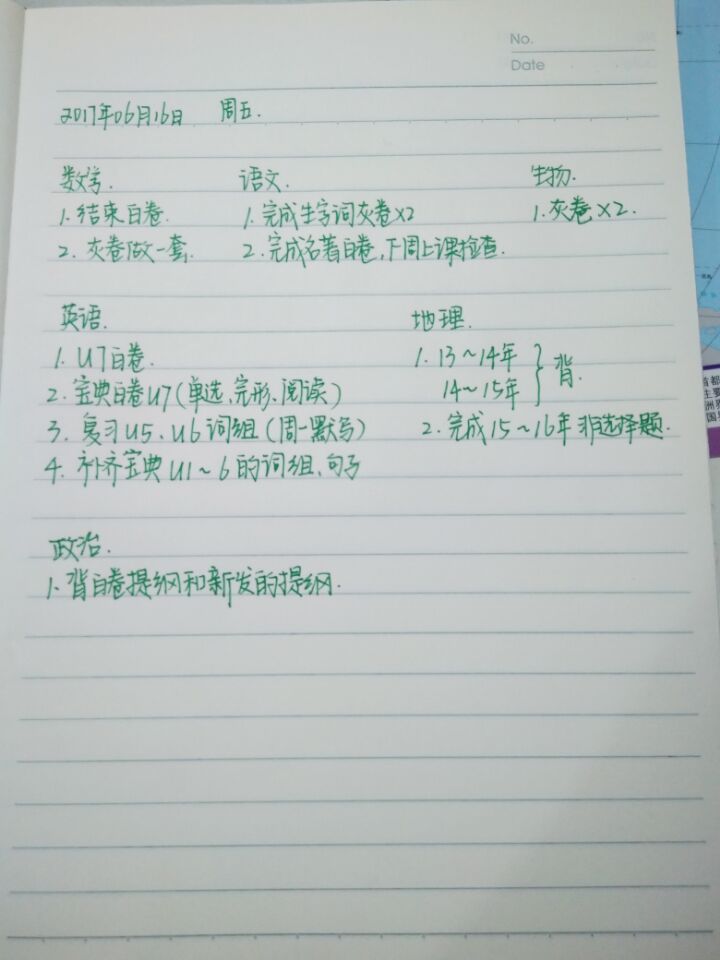 No.
Date
2017年06月16日 周五.
数学. 语文. 生物.
1. 结束白卷. 1. 完成生字词灰卷×2 1. 灰卷×2.
2. 灰卷做一套. 2. 完成名著白卷,下周上课检查.
英语. 地理.
1. U7白卷. 1. 13~14年
2. 宝典白卷U7(单选、完形、阅读) 14~15年 } 背.
3. 复习U5、U6词组(周一默写) 2. 完成15~16年非选择题.
4. 补齐宝典U1~6的词组、句子
政治.
1. 背白卷提纲和新发的提纲.
首都
主要
洲界
国界